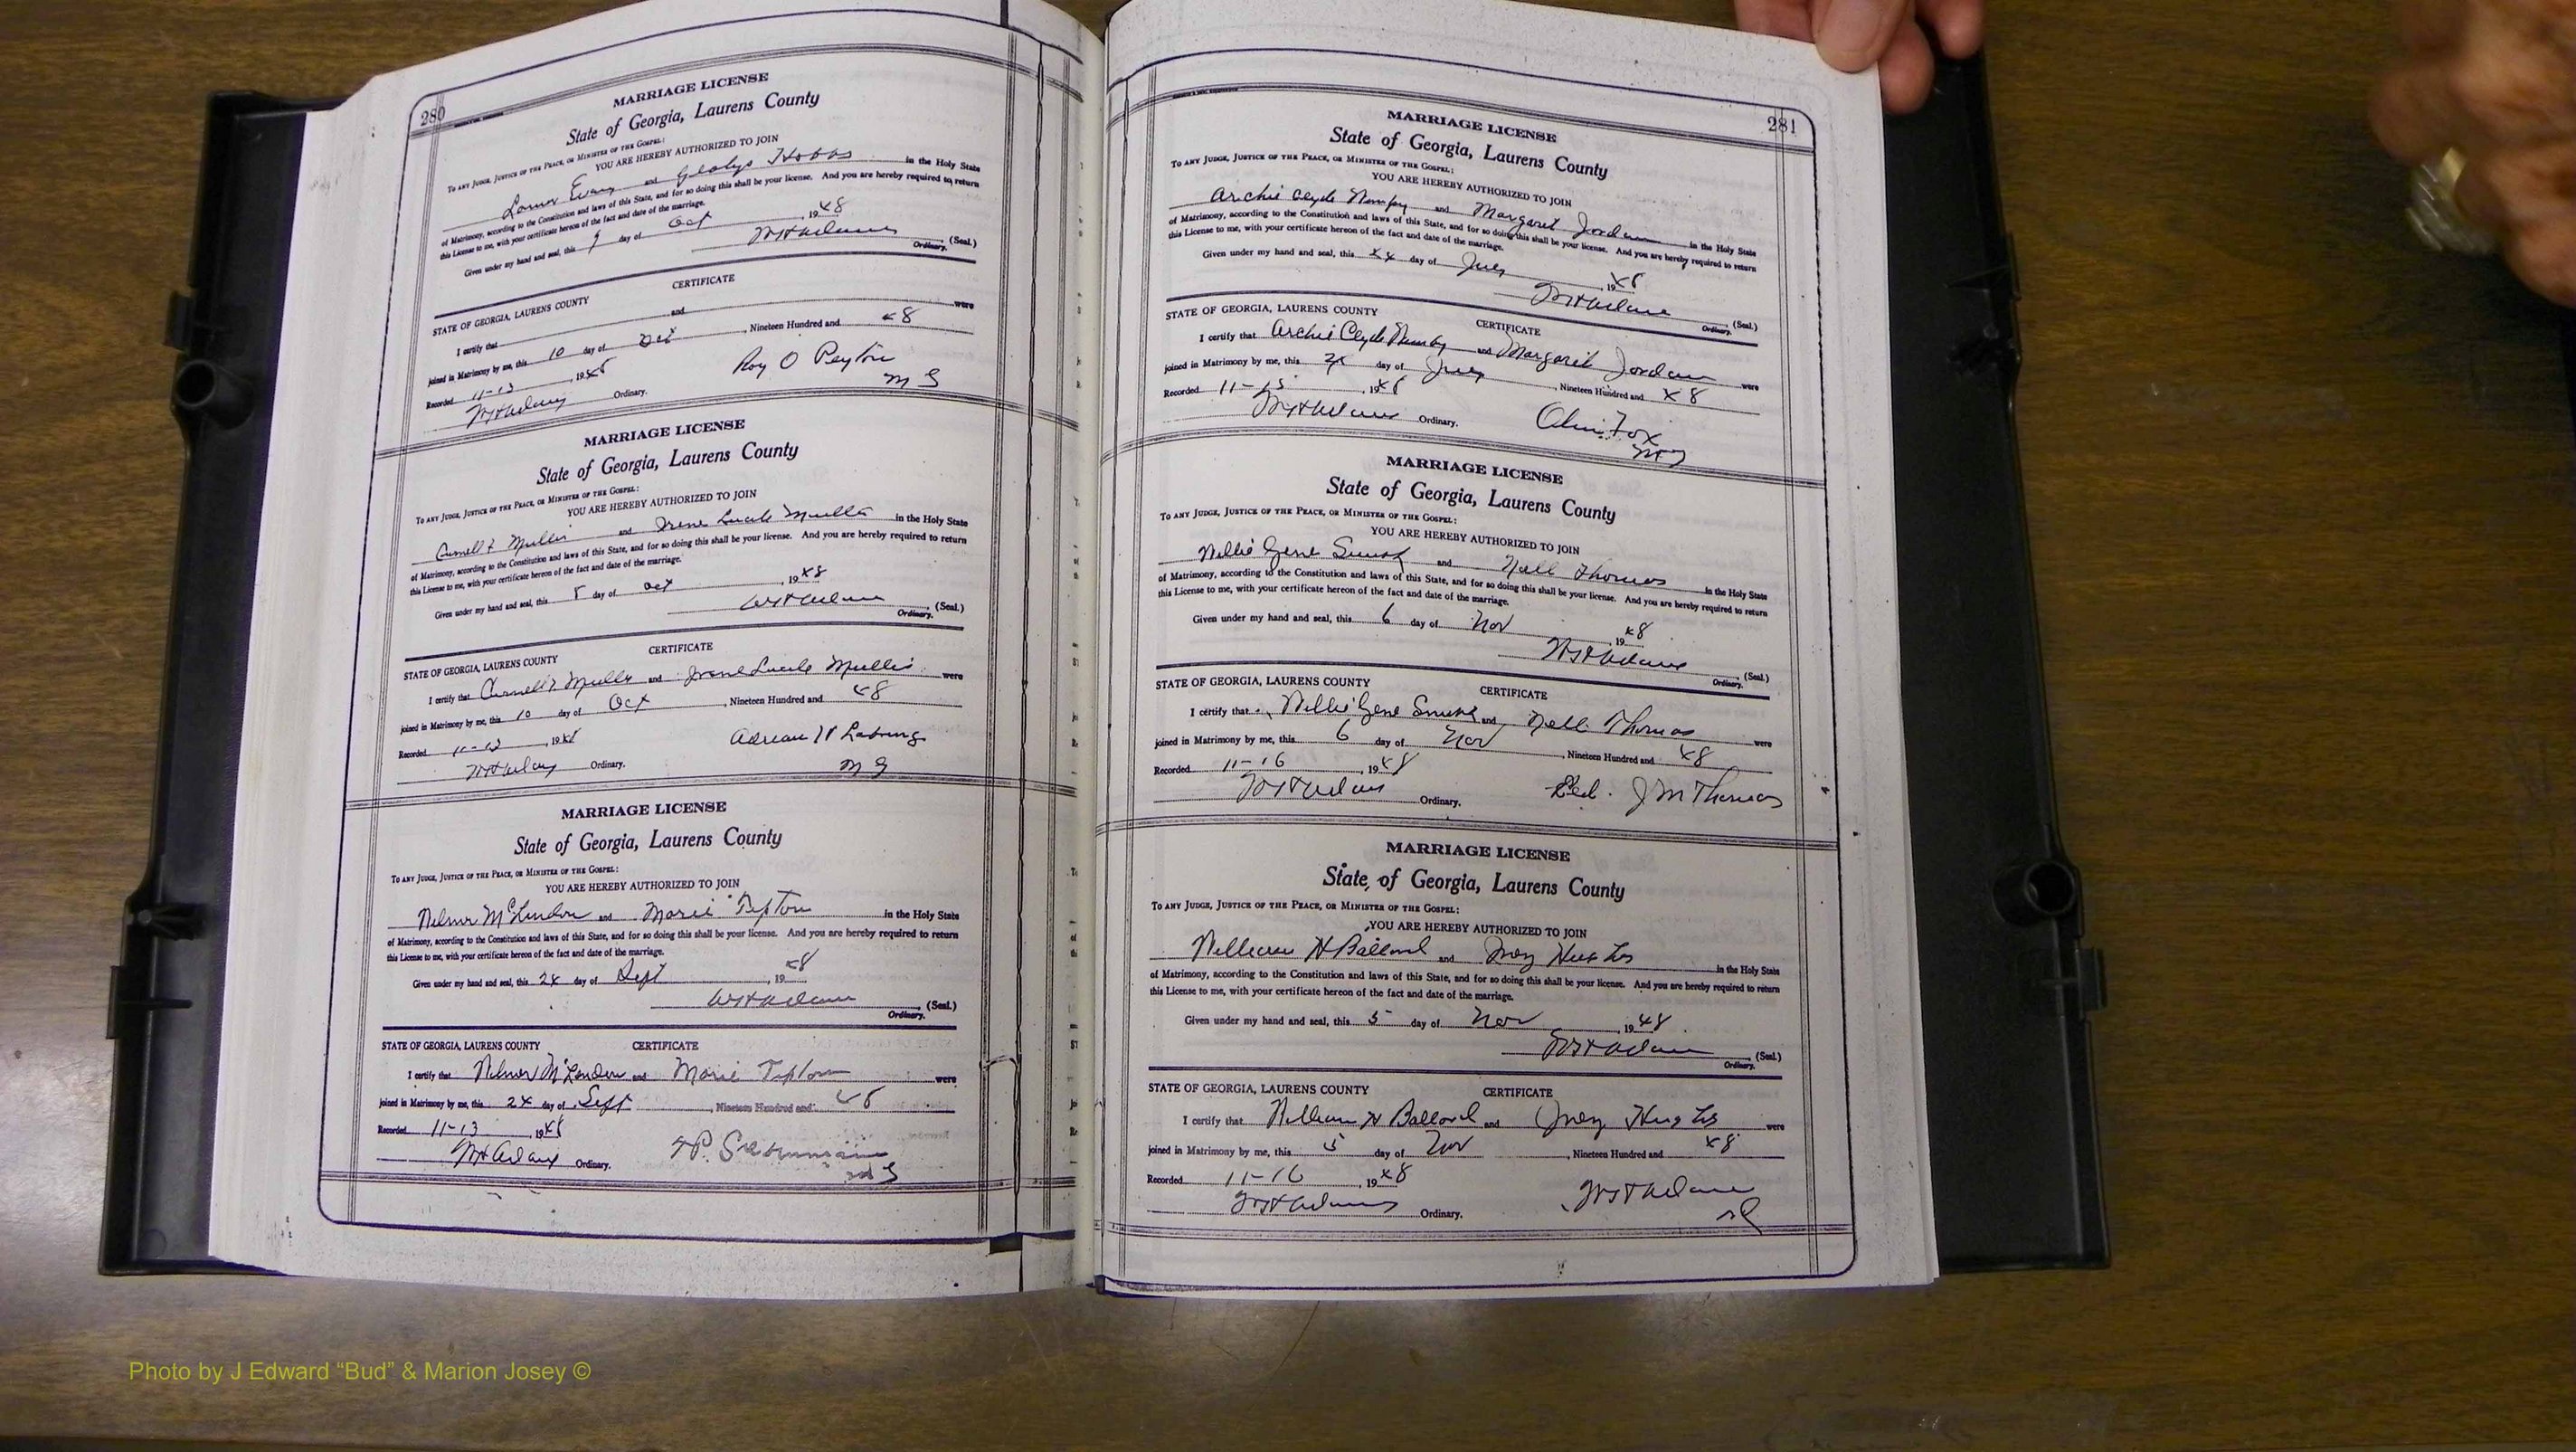 280
MARRIAGE LICENSE
State of Georgia, Laurens County
TO ANY JUDGE, JUSTICE OF THE PEACE, OR MINISTER OF THE GOSPEL:
YOU ARE HEREBY AUTHORIZED TO JOIN
and Gladys Hobbs in the Holy State
of Matrimony, according to the Constitution and laws of this State, and for so doing this shall be your license. And you are hereby required to return
this License to me, with your certificate hereon of the fact and date of the marriage.
Given under my hand and seal, this 9 day of Oct, 1948
(Seal.)
Ordinary.
CERTIFICATE
STATE OF GEORGIA, LAURENS COUNTY
I certify that and were
joined in Matrimony by me, this 10 day of Oct, Nineteen Hundred and 48
Recorded 11-13, 1948
Roy O Peyton
Ordinary.
M G
MARRIAGE LICENSE
State of Georgia, Laurens County
TO ANY JUDGE, JUSTICE OF THE PEACE, OR MINISTER OF THE GOSPEL:
YOU ARE HEREBY AUTHORIZED TO JOIN
Mullis and Irene Lucile Mullis in the Holy State
of Matrimony, according to the Constitution and laws of this State, and for so doing this shall be your license. And you are hereby required to return
this License to me, with your certificate hereon of the fact and date of the marriage.
Given under my hand and seal, this day of Oct, 1948
(Seal.)
Ordinary.
CERTIFICATE
STATE OF GEORGIA, LAURENS COUNTY
I certify that Mullis and Irene Lucile Mullis were
joined in Matrimony by me, this 10 day of Oct, Nineteen Hundred and 48
Recorded, 1948
Adrean
Ordinary.
M G
MARRIAGE LICENSE
State of Georgia, Laurens County
TO ANY JUDGE, JUSTICE OF THE PEACE, OR MINISTER OF THE GOSPEL:
YOU ARE HEREBY AUTHORIZED TO JOIN
McLendon and Marie Tipton in the Holy State
of Matrimony, according to the Constitution and laws of this State, and for so doing this shall be your license. And you are hereby required to return
this License to me, with your certificate hereon of the fact and date of the marriage.
Given under my hand and seal, this 24 day of Sept, 1948
(Seal.)
Ordinary.
STATE OF GEORGIA, LAURENS COUNTY CERTIFICATE
I certify that McLendon and Marie Tipton were
joined in Matrimony by me, this 24 day of Sept, Nineteen Hundred and 48
Recorded 11-13, 1948
Ordinary.
281
MARRIAGE LICENSE
State of Georgia, Laurens County
TO ANY JUDGE, JUSTICE OF THE PEACE, OR MINISTER OF THE GOSPEL:
YOU ARE HEREBY AUTHORIZED TO JOIN
Archie Clyde and Margaret Jordan in the Holy State
of Matrimony, according to the Constitution and laws of this State, and for so doing this shall be your license. And you are hereby required to return
this License to me, with your certificate hereon of the fact and date of the marriage.
Given under my hand and seal, this 24 day of, 1948
(Seal.)
Ordinary.
STATE OF GEORGIA, LAURENS COUNTY CERTIFICATE
I certify that Archie Clyde and Margaret Jordan were
joined in Matrimony by me, this 24 day of, Nineteen Hundred and 48
Recorded 11-15, 1948
Ordinary.
Fox
MARRIAGE LICENSE
State of Georgia, Laurens County
TO ANY JUDGE, JUSTICE OF THE PEACE, OR MINISTER OF THE GOSPEL:
YOU ARE HEREBY AUTHORIZED TO JOIN
Willie Gene Smith and Nell Thomas in the Holy State
of Matrimony, according to the Constitution and laws of this State, and for so doing this shall be your license. And you are hereby required to return
this License to me, with your certificate hereon of the fact and date of the marriage.
Given under my hand and seal, this 6 day of Nov, 1948
(Seal.)
Ordinary.
STATE OF GEORGIA, LAURENS COUNTY CERTIFICATE
I certify that Willie Gene Smith and Nell Thomas were
joined in Matrimony by me, this 6 day of Nov, Nineteen Hundred and 48
Recorded 11-16, 1948
Ordinary.
J M Thomas
MARRIAGE LICENSE
State of Georgia, Laurens County
TO ANY JUDGE, JUSTICE OF THE PEACE, OR MINISTER OF THE GOSPEL:
YOU ARE HEREBY AUTHORIZED TO JOIN
William H Ballard and Hughes in the Holy State
of Matrimony, according to the Constitution and laws of this State, and for so doing this shall be your license. And you are hereby required to return
this License to me, with your certificate hereon of the fact and date of the marriage.
Given under my hand and seal, this 5 day of Nov, 1948
(Seal.)
Ordinary.
STATE OF GEORGIA, LAURENS COUNTY CERTIFICATE
I certify that William H Ballard and Hughes were
joined in Matrimony by me, this 5 day of Nov, Nineteen Hundred and 48
Recorded 11-16, 1948
Ordinary.
Photo by J Edward “Bud” & Marion Josey ©